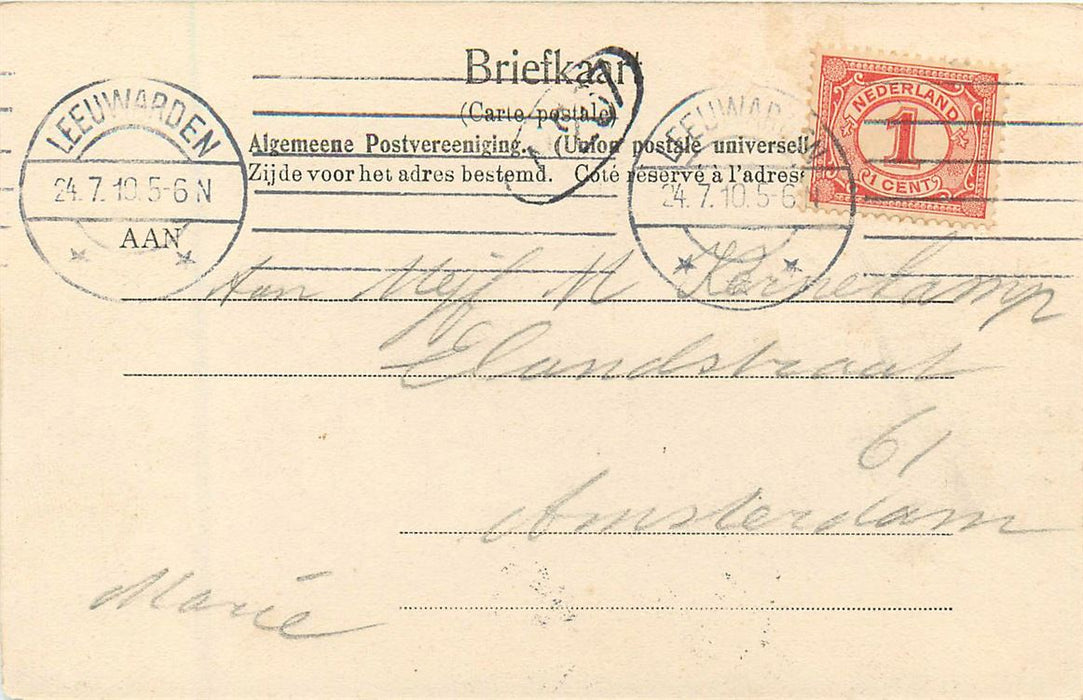 Briefkaart
(Carte postale)
Algemeene Postvereeniging. (Union postale universelle
Zijde voor het adres bestemd. Côté réservé à l'adresse
LEEUWARDEN
24.7.10.5-6 N
LEEUWARDEN
24.7.10.5-6 N
NEDERLAND
1
1 CENT
AAN
Aan Mejf M Kernekamp
Elandstraat
61
Amsterdam
Marie